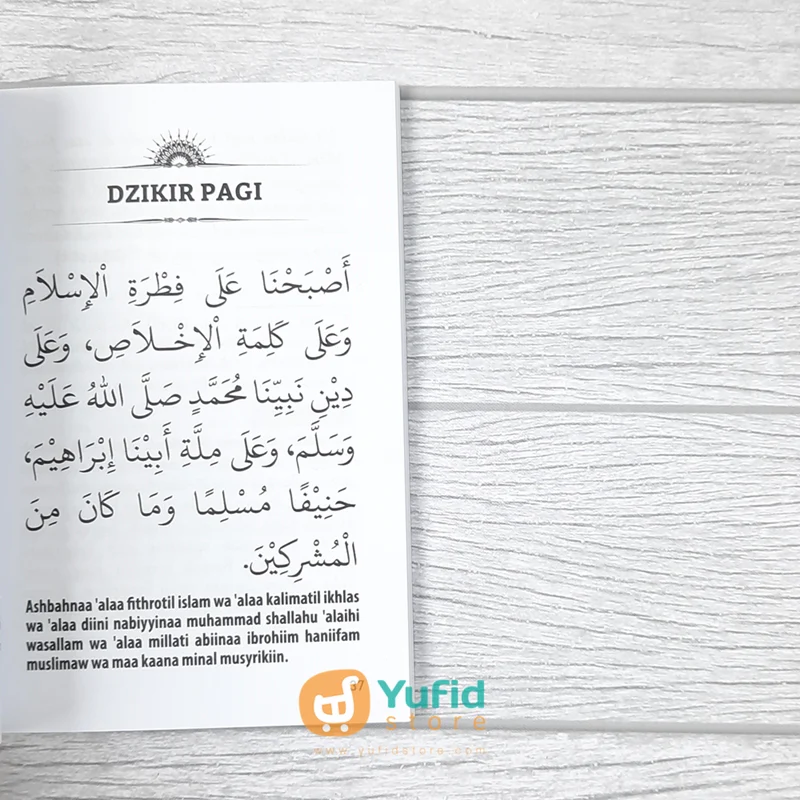 DZIKIR PAGI
أَصْبَحْنَا عَلَى فِطْرَةِ اْلإِسْلاَمِ
وَعَلَى كَلِمَةِ اْلإِخْـلاَصِ، وَعَلَى
دِيْنِ نَبِيِّنَا مُحَمَّدٍ صَلَّى اللهُ عَلَيْهِ
وَسَلَّمَ، وَعَلَى مِلَّةِ أَبِيْنَا إِبْرَاهِيْمَ،
حَنِيْفًا مُسْلِمًا وَمَا كَانَ مِنَ
الْمُشْرِكِيْنَ.
Ashbahnaa 'alaa fithrotil islam wa 'alaa kalimatil ikhlas
wa 'alaa diini nabiyyinaa muhammad shallahu 'alaihi
wasallam wa 'alaa millati abiinaa ibrohiim haniifam
muslimaw wa maa kaana minal musyrikiin.
37
Yufid
store
www.yufidstore.com